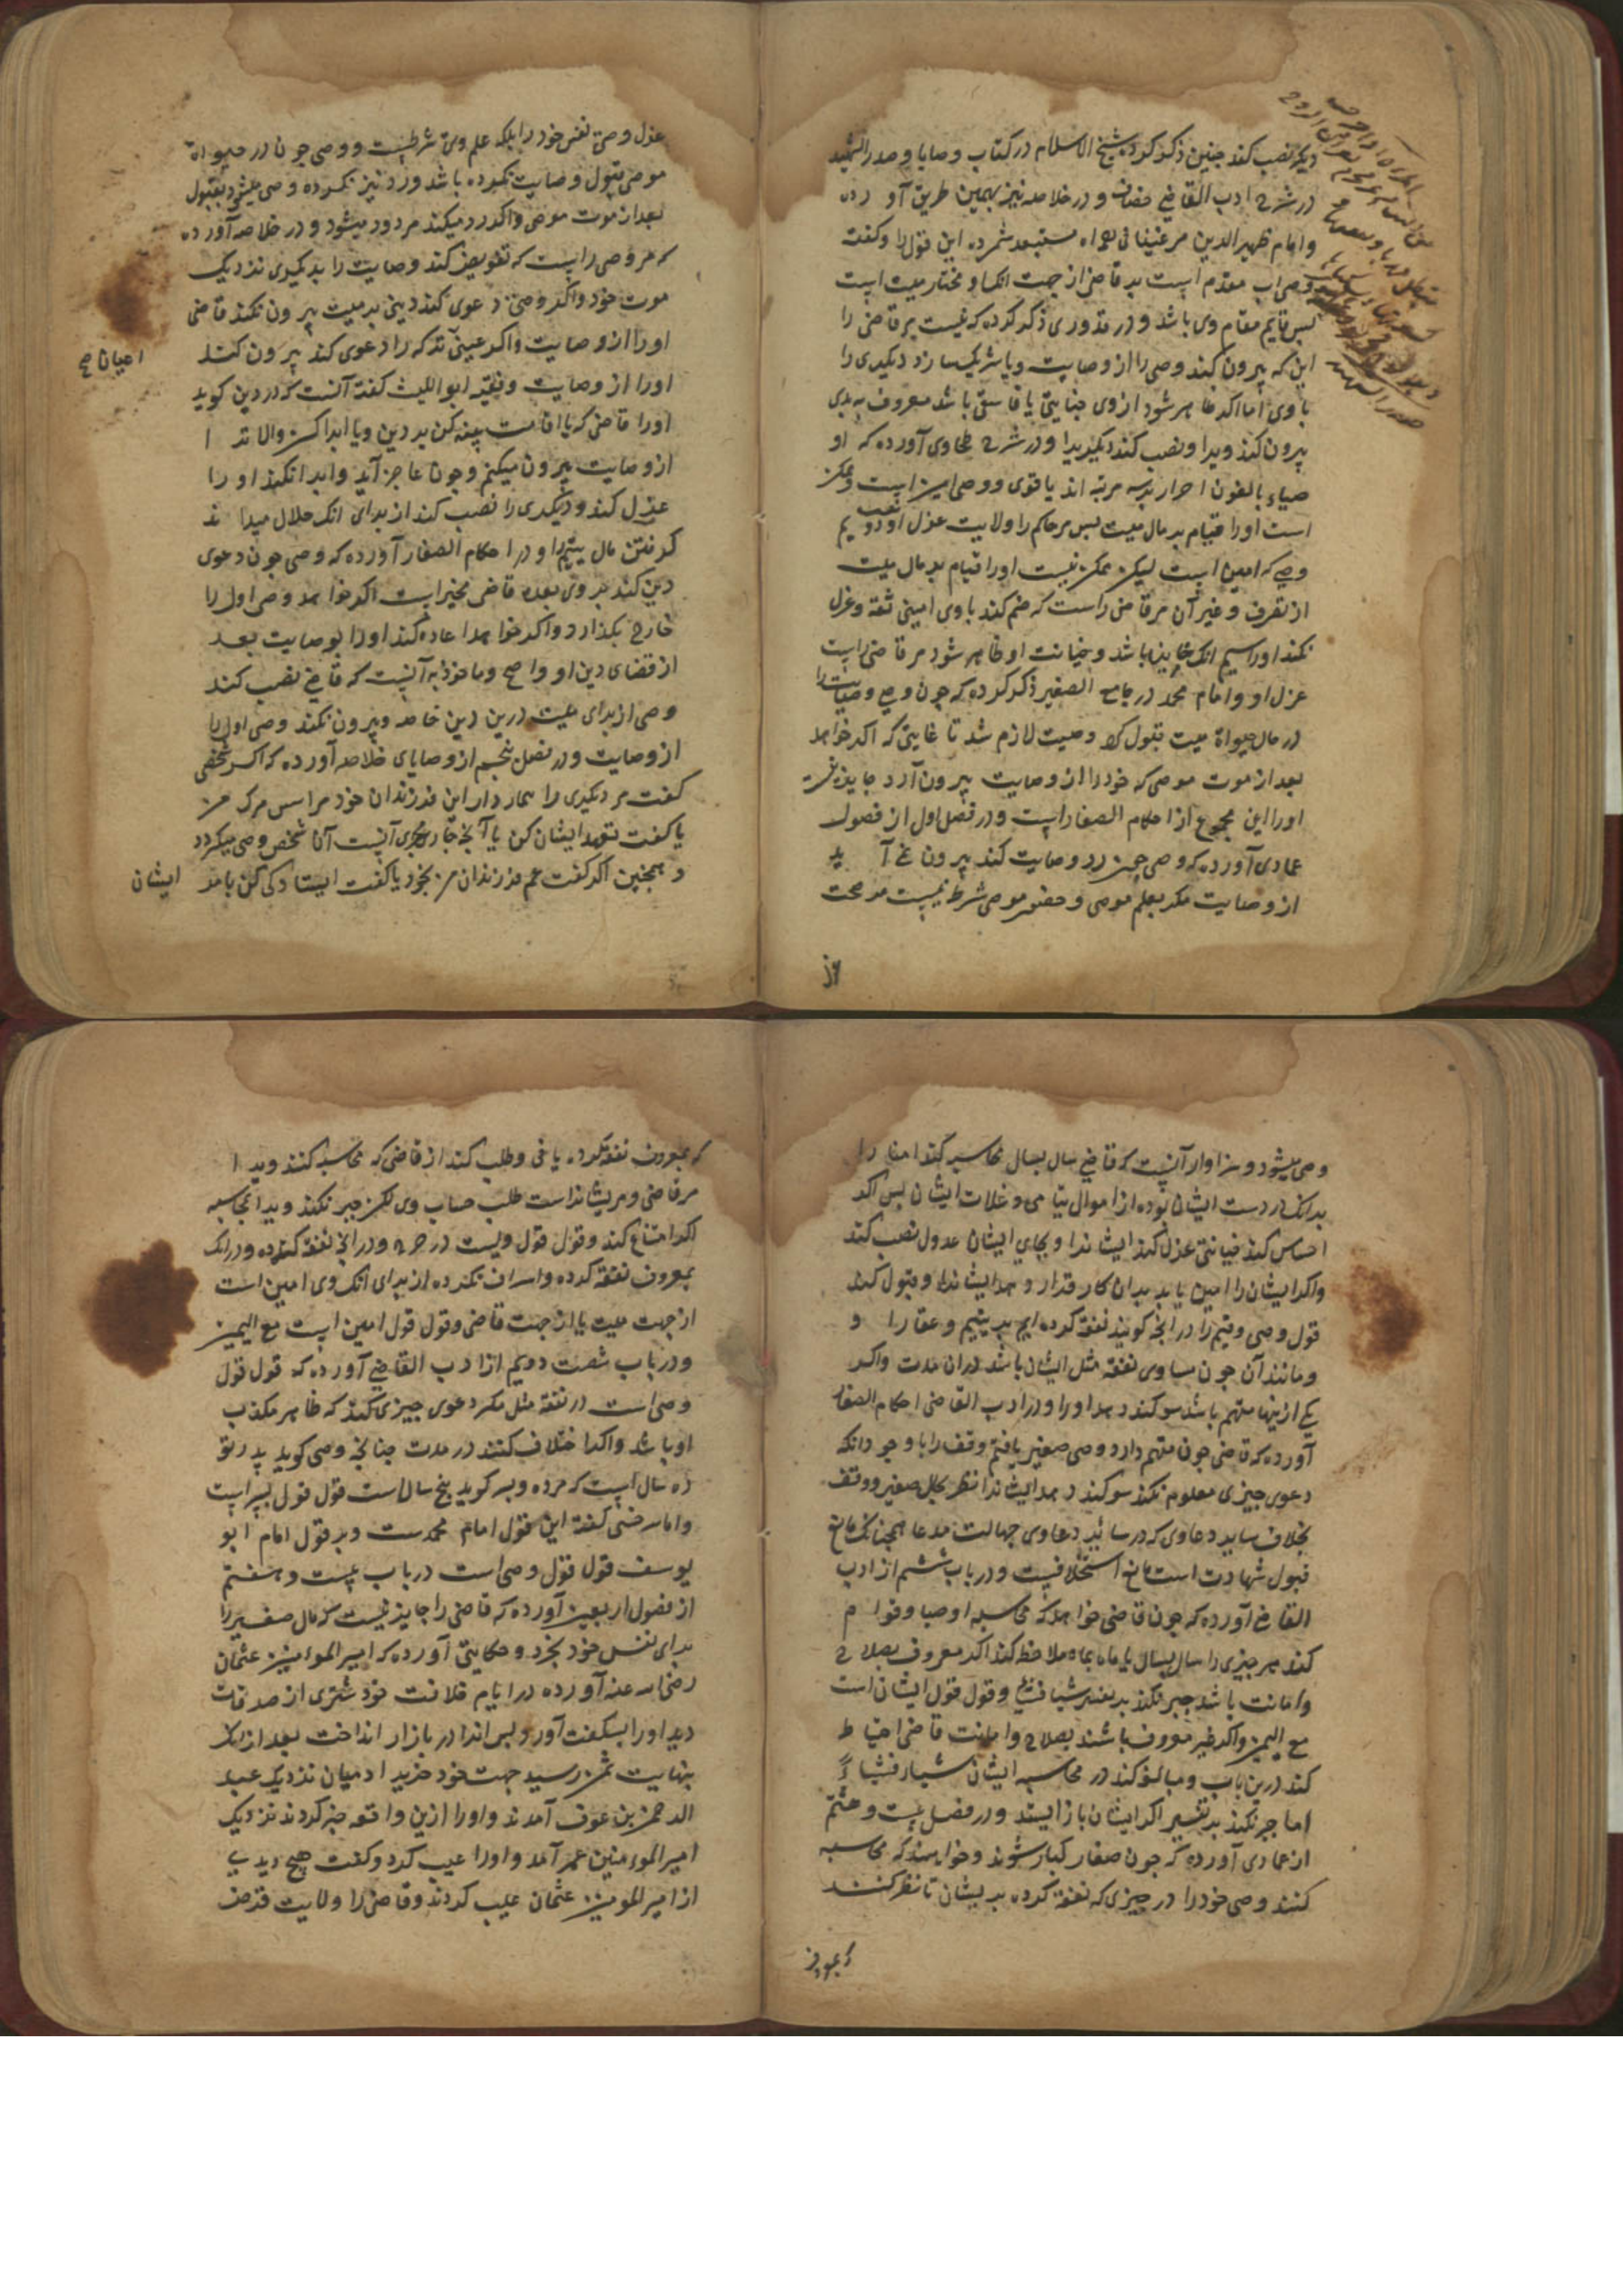 دیکر نصب کند چنین ذکر کرده شیخ الاسلام در کتاب وصایا و صدر الشهید
در شرح ادب القاضی خصاف و در خلاصه نیز بهمین طریق آورده
و امام ظهیر الدین مرغینانی مستبعد شمرده این قول را و کفته
وصی اب مقدم است بر قاضی از جهت انک او مختار میت است
بس قایم مقام وی باشد و در قدوری ذکر کرده که نیست بر قاضی را
این که بیرون کند وصی را از وصایت و یا شریک سازد دیکری را
با وی اما اکر ظاهر شود از وی جنایتی یا فاسق باشد معروف به بدی
بیرون کند ویرا و نصب کند دیکریرا و در شرح طحاوی آورده که او
صیاء بالغون احرار بر سه مرتبه اند یا قوی و وصی امین است و ممکن
است او را قیام بر مال میت بس مر حاکم را ولایت عزل او دویم
وصی که امین است لیکن ممکن نیست او را قیام بر مال میت
از تصرف و غیر آن مر قاضی راست که ضم کند با وی امینی ثقه و عزل
نکند او را سیم انک خاین باشد و خیانت او ظاهر شود مر قاضی راست
عزل او و امام محمد در جامع الصغیر ذکر کرده که چون وصی وصایت را
در حال حیواة میت قبول کرد وصیت لازم شد تا غایتی که اکر خواهد
بعد از موت موصی که خود را از وصایت بیرون آرد جایز نیست
او را این مجموع از احکام الصغار است و در فصل اول از فصول
عمادی آورده که وصی چون رد وصایت کند بیرون نمی آید
از وصایت مکر بعلم موصی و حضور موصی شرط نیست مر صحت
عزل وصی نفس خود را بلکه علم وی شرطست و وصی چون در حیواة
موصی قبول وصایت نکرده باشد و رد نیز نکرده وصی میشود بقبول
بعد از موت موصی و اکر رد میکند مردود میشود و در خلاصه آورده
که مر وصی راست که تفویض کند وصایت را بدیکری نزدیک
موت خود و اکر وصی دعوی کند دینی بر میت بیرون نکند قاضی
او را از وصایت و اکر عینی ترکه را دعوی کند بیرون کند
اعیان صح
او را از وصایت و فقیه ابو اللیث کفته آنست که در دین کوید
او را قاضی که یا اقامت بینه کن بر دین و یا ابرا کن والا ترا
از وصایت بیرون میکنم و چون عاجز آید و ابرا نکند او را
عزل کند و دیکری را نصب کند از برای انک حلال میداند
کرفتن مال یتیم را و در احکام الصغار آورده که وصی چون دعوی
دین کند بر وی بعده قاضی مخیر است اکر خواهد وصی اول را
خارج بکذارد و اکر خواهد اعاده کند او را بوصایت بعد
از قضای دین او و اصح و ماخوذ به آنست که قاضی نصب کند
وصی از برای میت درین دین خاصه و بیرون نکند وصی اول را
از وصایت و در فصل پنجم از وصایای خلاصه آورده که اکر شخصی
کفت مر دیکری را تیمار دار این فرزندان خود مرا بس مرک من
یا کفت تعهد ایشان کن یا آنچه جاری مجری آنست آنا شخص وصی میکردد
و همچنین اکر کفت غم فرزندان من بخور یا کفت ایستادکی کن بامر ایشان
وصی میشود و سزاوار آنست که قاضی سال بسال محاسبه کند امنا را
بدانک در دست ایشان بوده از اموال یتامی و غلات ایشان بس اکر
احساس کند خیانتی عزل کند ایشانرا و بجای ایشان عدول نصب کند
و اکر ایشان را امین یابد بران کار قرار دهد ایشانرا و قبول کند
قول وصی و قیم را در انچه کویند نفقه کرده ایم بر یتیم و عقار را و
و مانند آن چون مساوی نفقه مثل ایشان باشد در ان مدت و اکر
یکی از ینها متهم باشد سوکند دهد او را و در ادب القاضی احکام الصغار
آورده که قاضی چون متهم دارد وصی صغیر یا قیم وقف را با وجود انکه
دعوی چیزی معلوم نکند سوکند دهد ایشانرا نظر بحال صغیر و وقف
بخلاف سایر دعاوی که در سایر دعاوی جهالت مدعا همچنانک مانع
قبول شهادت است مانع استحلافست و در باب ششم از ادب
القاضی آورده که چون قاضی خواهد که محاسبه اوصیا و قوام
کند هر چیزی را سال بسال یا ماه بماه ملاحظه کند اکر معروف بصلاح
و امانت باشد جبر نکند بر تفسیر شیأ فشیأ و قول قول ایشان است
مع الیمین و اکر غیر معروف باشند بصلاح و امانت قاضی احتیاط
کند درین باب و مبالغه کند در محاسبه ایشان شیأ فشیأ
اما جبر نکند بر تفسیر اکر ایشان باز ایستد و در فصل بیست و هشتم
از عمادی آورده که چون صغار کبار شوند و خواهند که محاسبه
کنند وصی خود را در چیزی که نفقه کرده بریشان تا نظر کنند
که بمعروف
که بمعروف نفقه کرده یا نی و طلب کند از قاضی که محاسبه کنند ویرا
مر قاضی و مریشانراست طلب حساب وی لکن جبر نکند ویرا بمحاسبه
اکر امتناع کند و قول قول ویست در خرج و در انچه نفقه کرده و در انک
بمعروف نفقه کرده و اسراف نکرده از برای انک وی امین است
از جهت میت یا از جهت قاضی و قول قول امین است مع الیمین
و در باب شصت دویم از ادب القاضی آورده که قول قول
وصی است در نفقه مثل مکر دعوی چیزی کند که ظاهر مکذب
او باشد و اکر اختلاف کنند در مدت چنانچه وصی کوید پدر تو
ده سال است که مرده و پسر کوید پنج سال است قول قول پسر است
و امام سرخسی کفته این قول امام محمدست و بر قول امام ابو
یوسف قول قول وصی است در باب بیست و هفتم
از فصول اربعین آورده که قاضی را جایز نیست که مال صغیر را
برای نفس خود بخرد و حکایتی آورده که امیر المومنین عثمان
رضی الله عنه آورده در ایام خلافت خود شتری از صدقات
دید او را بسکفت آورد بس انرا در بازار انداخت بعد از انک
بنهایت ثمن رسید جهت خود خرید ادمیان نزدیک عبد
الرحمن بن عوف آمدند و او را ازین واقعه خبر کردند نزدیک
امیر المومنین عمر آمد و او را عیب کرد و کفت هیچ دیدی
از امیر المومنین عثمان عیب کردند و قاضی را ولایت قرض